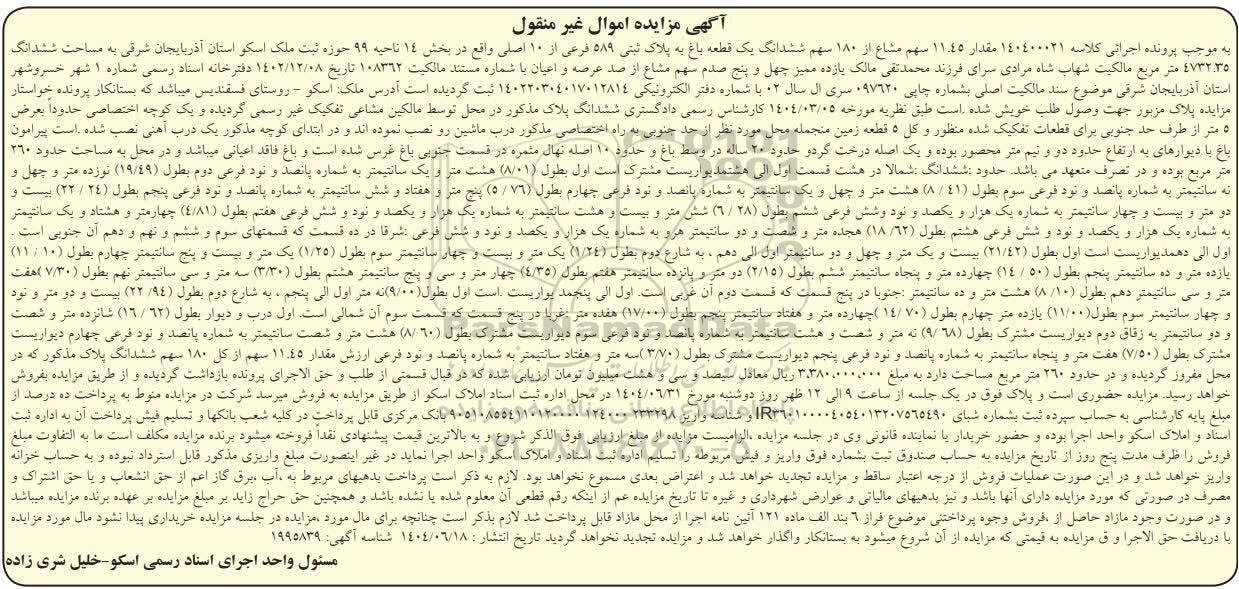 آگهی مزایده اموال غیر منقول
به موجب پرونده اجرائی کلاسه ۱۴۰۴۰۰۰۲۱ مقدار ۱۱.۴۵ سهم مشاع از ۱۸۰ سهم ششدانگ یک قطعه باغ به پلاک ثبتی ۵۸۹ فرعی از ۱۰ اصلی واقع در بخش ۱۴ ناحیه ۹۹ حوزه ثبت ملک اسکو استان آذربایجان شرقی به مساحت ششدانگ
۴۷۳۲.۳۵ متر مربع مالکیت شهاب شاه مرادی سرای فرزند محمدتقی مالک یازده ممیز چهل و پنج صدم سهم مشاع از صد عرصه و اعیان با شماره مستند مالکیت ۱۰۸۳۶۲ تاریخ ۱۴۰۲/۱۲/۰۸ دفترخانه اسناد رسمی شماره ۱ شهر خسروشهر
استان آذربایجان شرقی موضوع سند مالکیت اصلی بشماره چاپی ۰۹۷۶۲۰ سری ال سال ۰۲ با شماره دفتر الکترونیکی ۱۴۰۲۲۰۳۰۴۰۱۷۰۱۲۸۱۴ ثبت گردیده است آدرس ملک: اسکو - روستای فسقندیس میباشد که بستانکار پرونده خواستار
مزایده پلاک مزبور جهت وصول طلب خویش شده .است طبق نظریه مورخه ۱۴۰۴/۰۳/۰۵ کارشناس رسمی دادگستری ششدانگ پلاک مذکور در محل توسط مالکین مشاعی تفکیک غیر رسمی گردیده و یک کوچه اختصاصی حدوداً بعرض
۵ متر از طرف حد جنوبی برای قطعات تفکیک شده منظور و کل ۵ قطعه زمین منجمله محل مورد نظر از حد جنوبی به راه اختصاصی مذکور درب ماشین رو نصب نموده اند و در ابتدای کوچه مذکور یک درب آهنی نصب شده .است پیرامون
باغ با دیوارهای به ارتفاع حدود دو و نیم متر محصور بوده و یک اصله درخت گردو حدود ۲۰ ساله در وسط باغ و حدود ۱۰ اصله نهال مثمره در قسمت جنوبی باغ غرس شده است و باغ فاقد اعیانی میباشد و در محل به مساحت حدود ۲۶۰
متر مربع بوده و در تصرف متعهد می باشد. حدود :ششدانگ :شمالا در هشت قسمت اول الی هشتمدیواریست مشترک است اول بطول (۸/۰۱) هشت متر و یک سانتیمتر به شماره پانصد و نود فرعی دوم بطول (۱۹/۴۹) نوزده متر و چهل و
نه سانتیمتر به شماره پانصد و نود فرعی سوم بطول (۴۱ / ۸) هشت متر و چهل و یک سانتیمتر به شماره پانصد و نود فرعی چهارم بطول (۷۶ / ۵) پنج متر و هفتاد و شش سانتیمتر به شماره پانصد و نود فرعی پنجم بطول (۲۴ / ۲۲) بیست و
دو متر و بیست و چهار سانتیمتر به شماره یک هزار و یکصد و نود وشش فرعی ششم بطول (۲۸ / ۶) شش متر و بیست و هشت سانتیمتر به شماره یک هزار و یکصد و نود و شش فرعی هفتم بطول (۴/۸۱) چهارمتر و هشتاد و یک سانتیمتر
به شماره یک هزار و یکصد و نود و شش فرعی هشتم بطول (۶۲/ ۱۸) هجده متر و شصت و دو سانتیمتر متر و به شماره یک هزار و یکصد و نود و شش فرعی :شرقا در ده قسمت که قسمتهای سوم و ششم و نهم و دهم آن جنوبی است .
اول الی دهمدیواریست است اول بطول (۲۱/۴۲) بیست و یک متر و چهل و دو سانتیمتر اول الی دهم ، به شارع دوم بطول (۱/۲۴) یک متر و بیست و چهار سانتیمتر سوم بطول (۱/۲۵) یک متر و بیست و پنج سانتیمتر چهارم بطول (۱۰ / ۱۱)
یازده متر و ده سانتیمتر پنجم بطول (۵۰ / ۱۴) چهارده متر و پنجاه سانتیمتر ششم بطول (۲/۱۵) دو متر و پانزده سانتیمتر هفتم بطول (۴/۳۵) چهار متر و سی و پنج سانتیمتر هشتم بطول (۳/۳۰) سه متر و سی سانتیمتر نهم بطول (۷/۳۰ )هفت
متر و سی سانتیمتر دهم بطول (۱۰/ ۸) هشت متر و ده سانتیمتر :جنوبا در پنج قسمت که قسمت دوم آن غربی است. اول الی پنجمد یواریست .است اول بطول(۹/۰۰)نه متر اول الی پنجم ، به شارع دوم بطول (۹۴/ ۲۲) بیست و دو متر و نود
و چهار سانتیمتر سوم بطول(۱۱/۰۰) یازده متر چهارم بطول (۷۰ / ۱۴ )چهارده متر و هفتاد سانتیمتر پنجم بطول (۱۷/۰۰) هفده متر :غربا در پنج قسمت که قسمت سوم آن شمالی است. اول درب و دیوار بطول (۶۲ / ۱۶) شانزده متر و شصت
و دو سانتیمتر به زقاق دوم دیواریست مشترک بطول (۶۸ /۹) نه متر و شصت و هشت سانتیمتر به شماره پانصد و نود فرعی سوم دیواریست مشترک بطول (۶۰ /۸) هشت متر و شصت سانتیمتر به شماره پانصد و نود فرعی چهارم دیواریست
مشترک بطول (۷/۵۰) هفت متر و پنجاه سانتیمتر به شماره پانصد و نود فرعی پنجم دیواریست مشترک بطول (۳/۷۰ )سه متر و هفتاد سانتیمتر به شماره پانصد و نود فرعی ارزش مقدار ۱۱.۴۵ سهم از کل ۱۸۰ سهم ششدانگ پلاک مذکور که در
محل مفروز گردیده و در حدود ۲۶۰ متر مربع مساحت دارد به مبلغ ۳.۳۸۰.۰۰۰.۰۰۰ ریال معادل سیصد و سی و هشت میلیون تومان ارزیابی شده که در قبال قسمتی از طلب و حق الاجرای پرونده بازداشت گردیده و از طریق مزایده بفروش
خواهد رسید. مزایده حضوری است و پلاک فوق در یک جلسه از ساعت ۹ الی ۱۲ ظهر روز دوشنبه مورخ ۱۴۰۴/۰۶/۳۱ در محل اداره ثبت اسناد املاک اسکو از طریق مزایده به فروش میرسد شرکت در مزایده منوط به پرداخت ده درصد از
مبلغ پایه کارشناسی به حساب سپرده ثبت بشماره شبای IR۳۶۰۱۰۰۰۰۴۰۵۴۰۱۳۲۰۷۵۶۵۴۹۰ و شناسه واریز بانک مرکزی قابل پرداخت در کلیه شعب بانکها و تسلیم فیش پرداخت آن به اداره ثبت
اسناد و املاک اسکو واحد اجرا بوده و حضور خریدار یا نماینده قانونی وی در جلسه مزایده ،الزامیست مزایده از مبلغ ارزیابی فوق الذکر شروع و به بالاترین قیمت پیشنهادی نقداً فروخته میشود برنده مزایده مکلف است ما به التفاوت مبلغ
فروش را ظرف مدت پنج روز از تاریخ مزایده به حساب صندوق ثبت بشماره فوق واریز و فیش مربوطه را تسلیم اداره ثبت اسناد و املاک اسکو واحد اجرا نماید در غیر اینصورت مبلغ واریزی مذکور قابل استرداد نبوده و به حساب خزانه
واریز خواهد شد و در این صورت عملیات فروش از درجه اعتبار ساقط و مزایده تجدید خواهد شد و اعتراض بعدی مسموع نخواهد بود. لازم به ذکر است پرداخت بدهیهای مربوط به ،آب ،برق گاز اعم از حق انشعاب و یا حق اشتراک و
مصرف در صورتی که مورد مزایده دارای آنها باشد و نیز بدهیهای مالیاتی و عوارض شهرداری و غیره تا تاریخ مزایده عم از اینکه رقم قطعی آن معلوم شده یا نشده باشد و همچنین حق حراج زاید بر مبلغ مزایده بر عهده برنده مزایده میباشد
و در صورت وجود مازاد حاصل از ،فروش وجوه پرداختنی موضوع فراز ۶ بند الف ماده ۱۲۱ آئین نامه اجرا از محل مازاد قابل پرداخت شد لازم بذکر است چنانچه برای مال مورد ،مزایده در جلسه مزایده خریداری پیدا نشود مال مورد مزایده
با دریافت حق الاجرا و ق مزایده به قیمتی که مزایده از آن شروع میشود به بستانکار واگذار خواهد شد و مزایده تجدید نخواهد گردید تاریخ انتشار : ۱۴۰۴/۰۶/۱۸ شناسه آگهی: ۱۹۹۵۸۳۹
مسئول واحد اجرای اسناد رسمی اسکو-خلیل شری زاده
ParsNamadData
۰۲۱-۸۸۳۴۹۶۷۰-۵